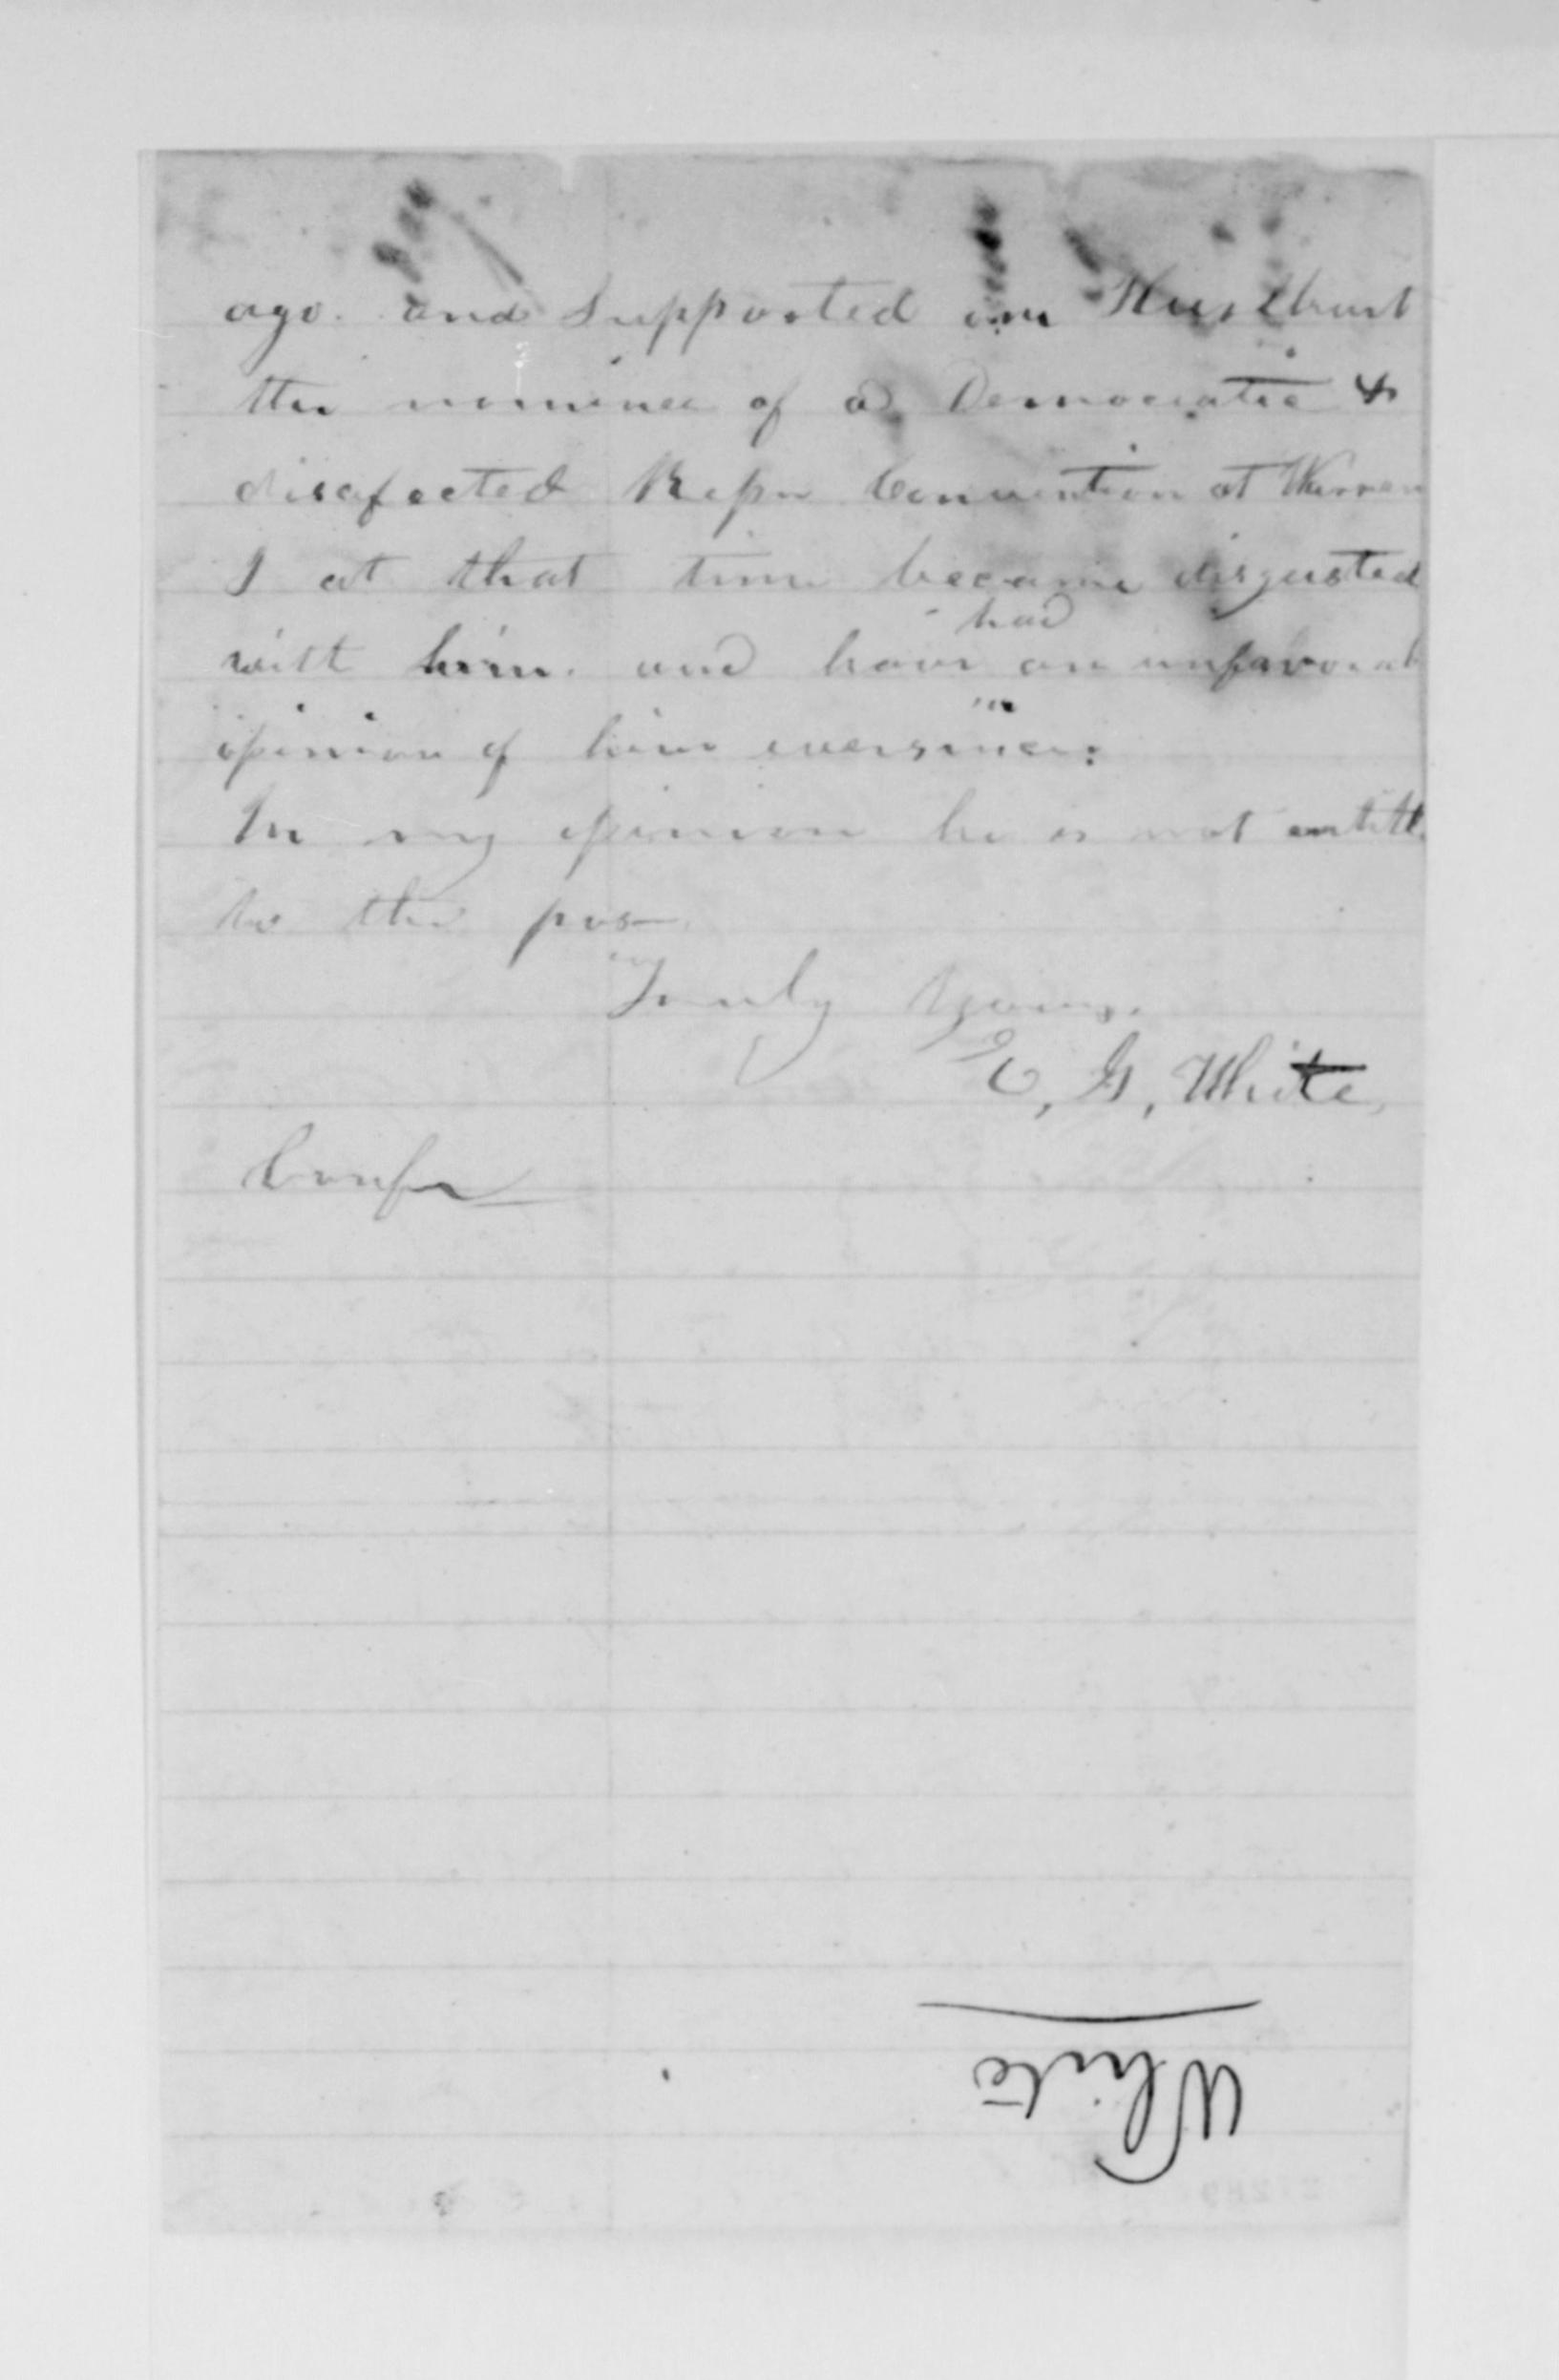 ago. and Supported Hurlburt
the nominee of a Democratic &
disafected Repn Convention at Warren
I at that time became disgusted
with him. and have had an unfavorab
opinion of him eversince.
In my opinion he is not entitl
to the pos
Truly Yours.
E. G, White
White